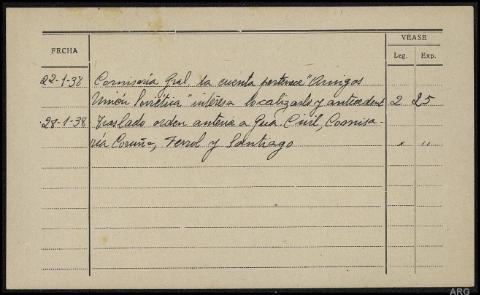 FECHA
VÉASE
Leg. Exp.
22-1-38 Comisaría Gral. da cuenta pertenece "Amigos
Unión Soviética" interesa localizarlo y antecedent 2 25
28-1-38 Traslado orden anterior a Gua. Civil, Comisa-
ría Coruña, Ferrol y Santiago " "
ARG